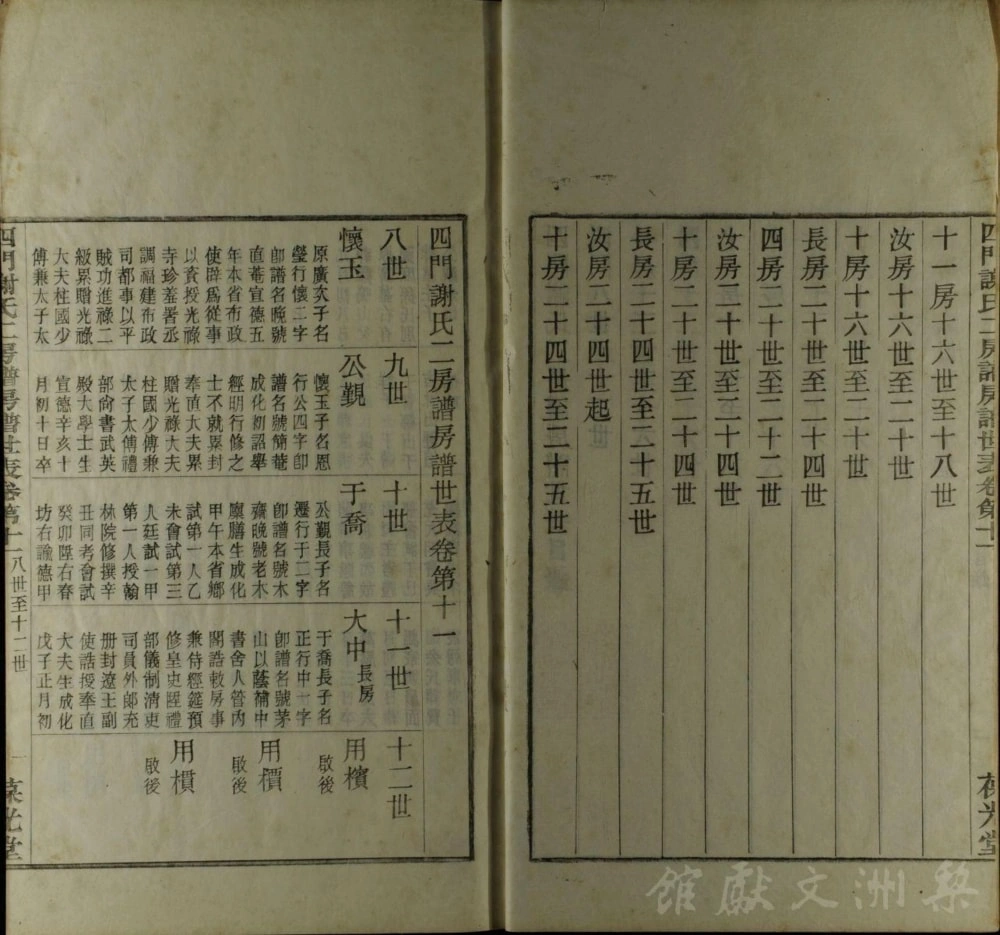 十一房十六世至十八世
汝房十六世至二十世
十房十六世至二十世
長房二十世至二十四世
四房二十世至二十二世
汝房二十世至二十四世
十房二十世至二十四世
長房二十四世至二十五世
汝房二十四世起
十房二十四世至二十五世
四門謝氏二房譜房譜世表卷第十一
四門謝氏二房譜房譜世表卷第十一
八世
九世
十世
十一世
十二世
懷玉
原廣次子名
瑩行懷二字
卽譜名晚號
直菴宣德五
年本省布政
使辟爲從事
以資授光祿
寺珍羞署丞
調福建布政
司都事以平
賊功進祿二
級累贈光祿
大夫柱國少
傅兼太子太
公覲
懷玉子名恩
行公四字卽
譜名號簡菴
成化初詔舉
經明行修之
士不就累封
奉直大夫累
贈光祿大夫
柱國少傅兼
太子太傅禮
部尙書武英
殿大學士生
宣德辛亥十
月初十日卒
于喬
公覲長子名
遷行于二字
卽譜名號木
齋晚號老木
廩膳生成化
甲午本省鄉
試第一人乙
未會試第三
人廷試一甲
第一人授翰
林院修撰辛
丑同考會試
癸卯陞右春
坊右諭德甲
大中 長房
于喬長子名
正行中一字
卽譜名號茅
山以蔭補中
書舍人管內
閣誥敕房事
兼侍經筵預
修皇史陞禮
部儀制淸吏
司員外郎充
册封遼王副
使誥授奉直
大夫生成化
戊子正月初
用檳
啟後
用價
啟後
用樌
啟後
四門謝氏二房譜房譜世表卷第十一 八世至十二世
一
葆光堂
葆光堂
梨洲文獻館